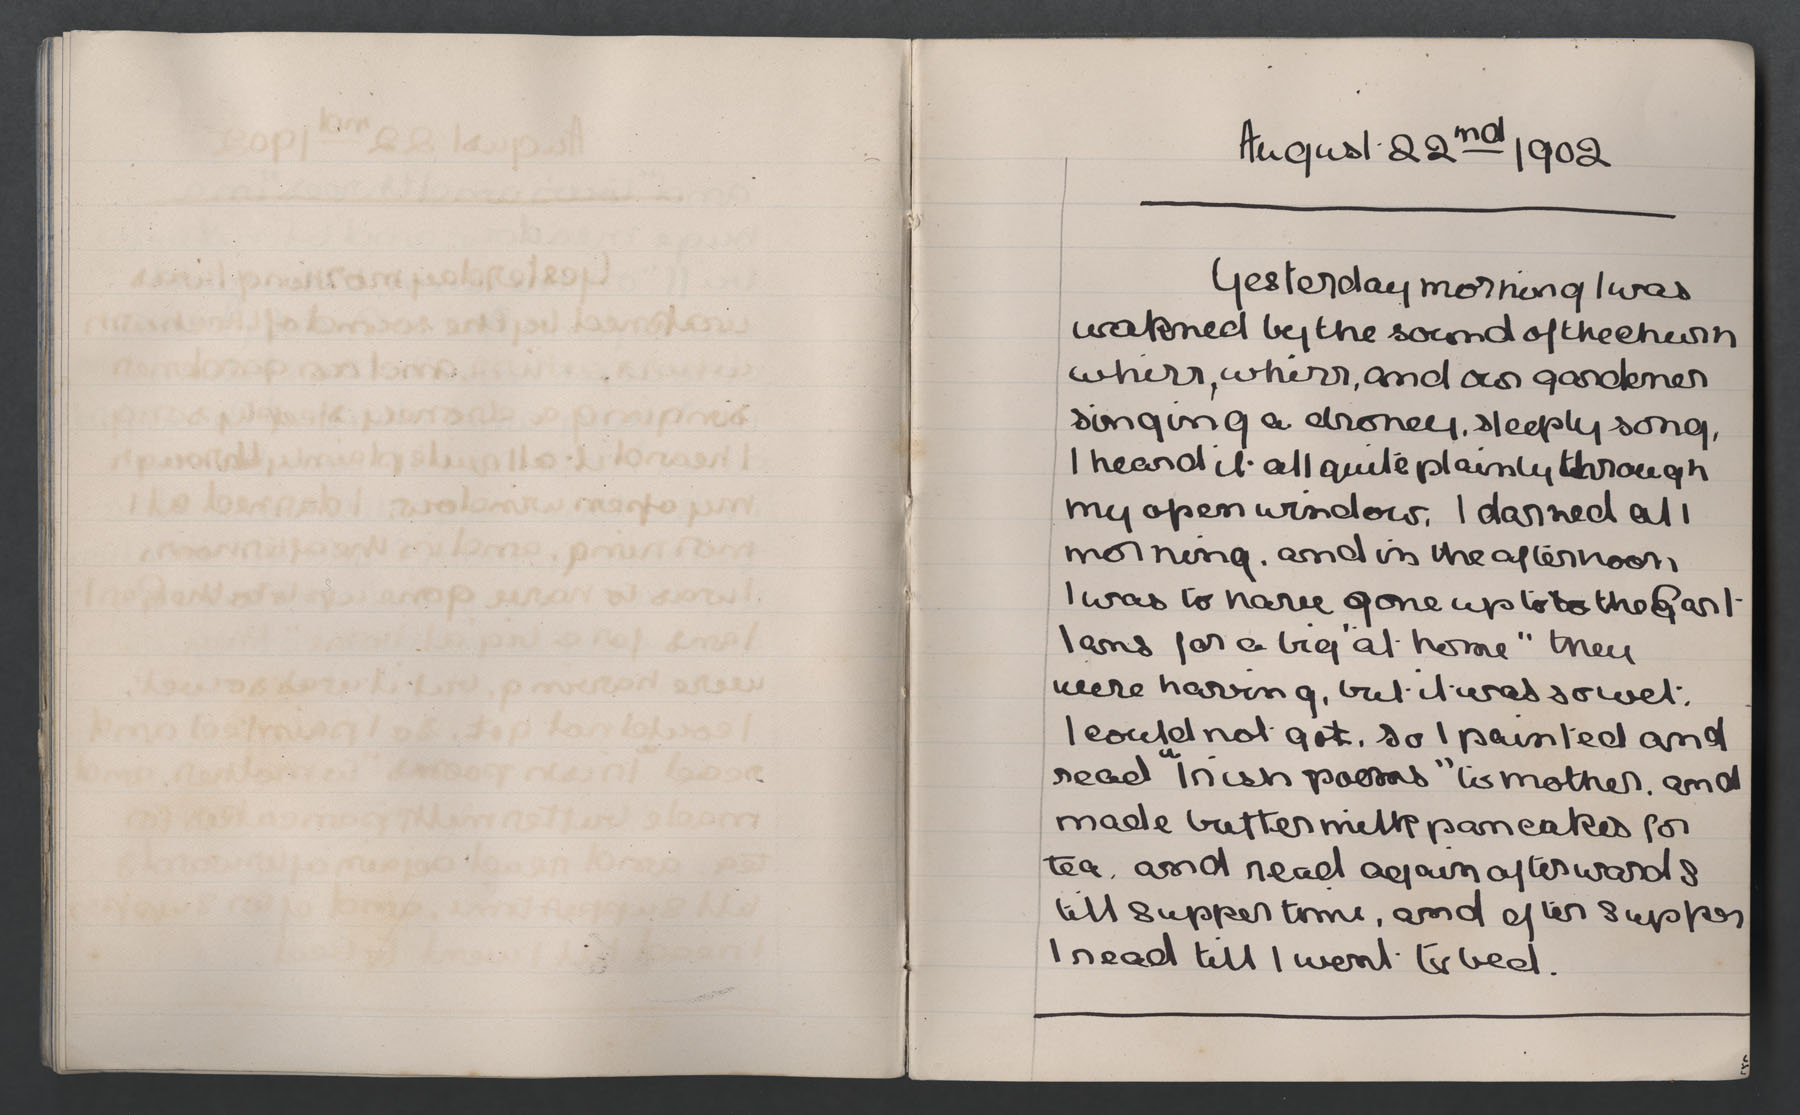 August 22nd 1902
Yesterday morning I was
wakned by the sound of the churn
whirr, whirr, and our gardener
singing a droney, sleeply song,
I heard it all quite plainly through
my open window. I darned all
morning, and in the afternoon
I was to have gone up to to the Gart-
lans for a big "at home" they
were having, but it was so wet.
I could not got, so I painted and
read "Irish poems" to mother, and
made buttermilk pancakes for
tea, and read again afterwards
till supper time, and after supper
I read till I went to bed.